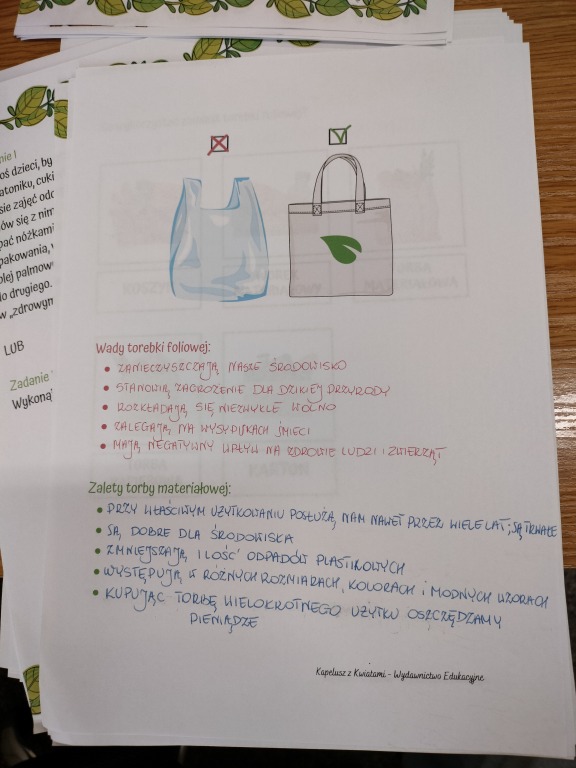 nie 1
oś dzieci, by
atoniku, cuki
sie zajęć odc
ów się z nim
pać nóżkami
pakowania, w
olej palmow
do drugiego.
w „zdrowym
LUB
Zadanie
Wykona
Wady torebki foliowej:
• ZANIECZYSZCZAJĄ NASZE ŚRODOWISKO
• STANOWIĄ ZAGROŻENIE DLA DZIKIEJ PRZYRODY
• ROZKŁADAJĄ SIĘ NIEZWYKLE WOLNO
• ZALEGAJĄ NA WYSYPISKACH ŚMIECI
• MAJĄ NEGATYWNY WPŁYW NA ZDROWIE LUDZI I ZWIERZĄT
Zalety torby materiałowej:
• PRZY WŁAŚCIWYM UŻYTKOWANIU POSŁUŻĄ NAM NAWET PRZEZ WIELE LAT; SĄ TRWAŁE
• SĄ DOBRE DLA ŚRODOWISKA
• ZMNIEJSZAJĄ ILOŚĆ ODPADÓW PLASTIKOWYCH
• WYSTĘPUJĄ W RÓŻNYCH ROZMIARACH, KOLORACH i MODNYCH WZORACH
• KUPUJĄC TORBĘ WIELOKROTNEGO UŻYTKU OSZCZĘDZAMY
PIENIĄDZE
Kapelusz z Kwiatami - Wydawnictwo Edukacyjne